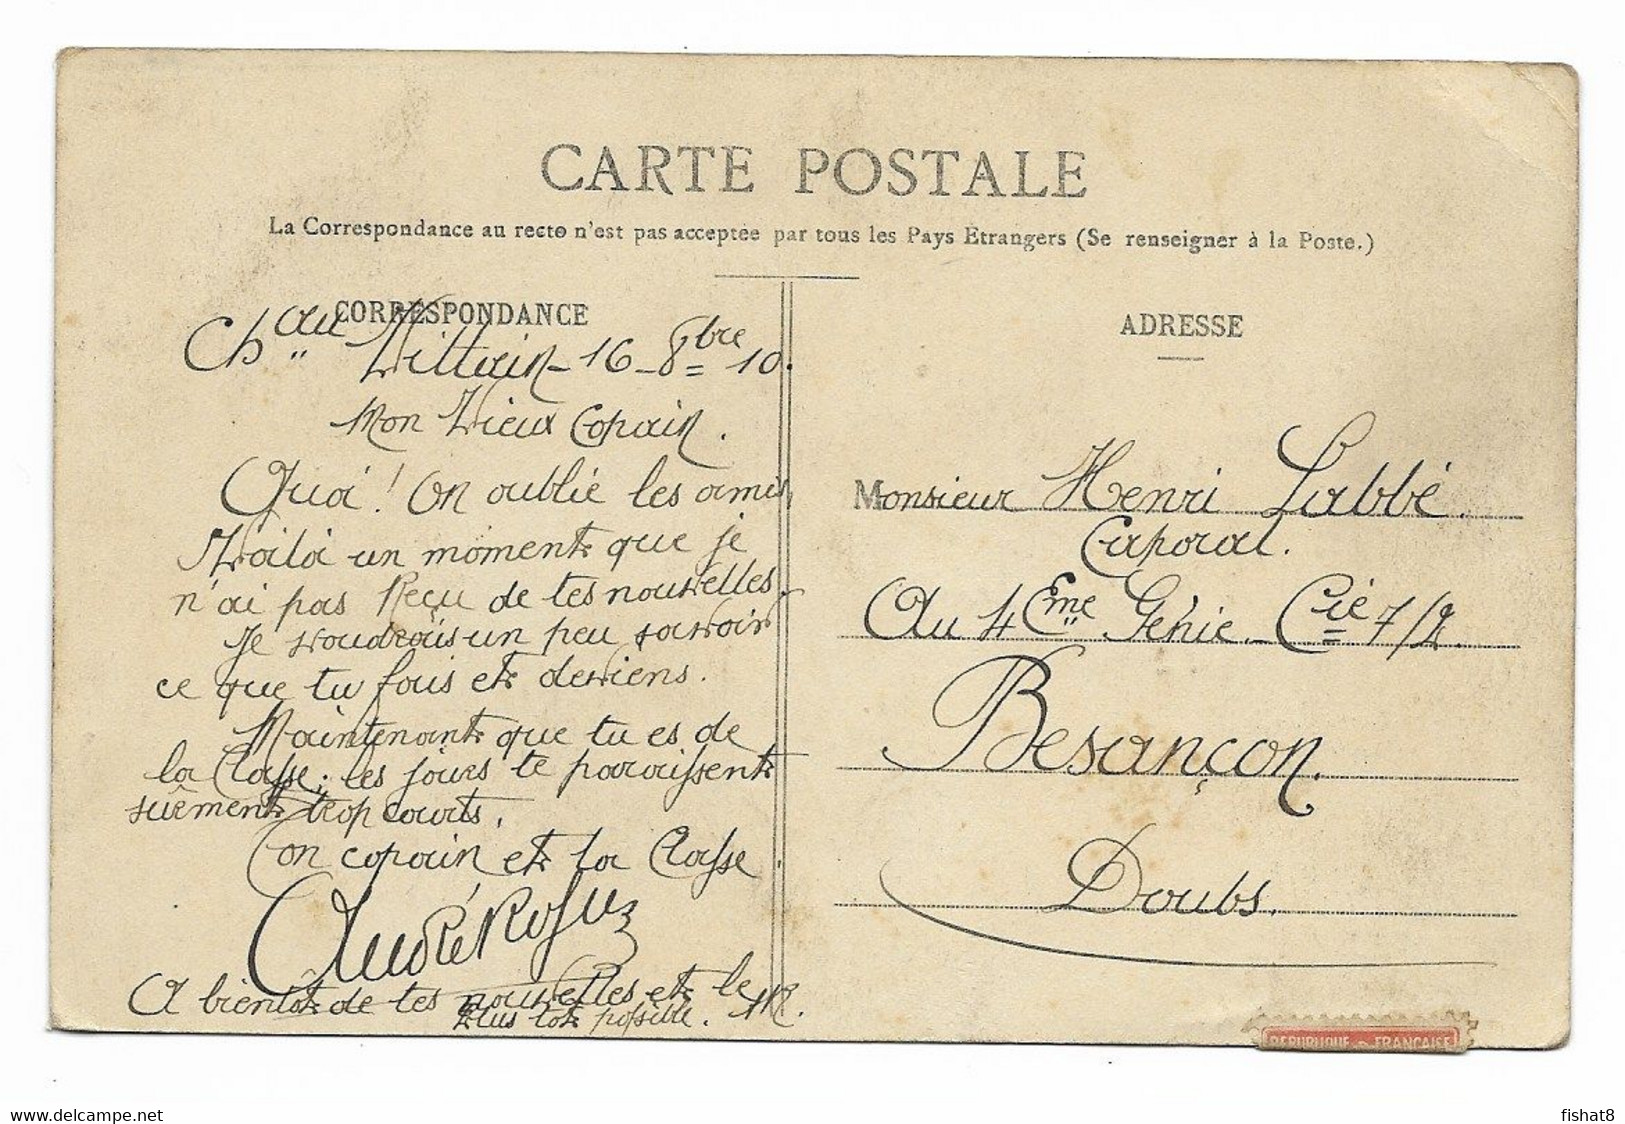 CARTE POSTALE
La Correspondance au recto n'est pas acceptée par tous les Pays Etrangers (Se renseigner à la Poste.)
CORRESPONDANCE
Chau Villain - 16 - 8bre 10.
Mon Vieux Copain.
Quoi ! On oublie les amis,
Voilà un moment que je
n'ai pas Reçu de tes nouvelles.
Je voudrais un peu savoir
ce que tu fais et deviens.
Maintenant que tu es de
la Classe ; les jours te paraissent
sûrement trop courts.
Ton copain et la Classe.
André
A bientôt de tes nouvelles et le
plus tôt possible. AR.
ADRESSE
Monsieur Henri Labbé.
Caporal.
Au 4Eme Génie - Cie 7/2.
Besançon.
Doubs.
REPUBLIQUE FRANÇAISE
www.delcampe.net
fishat8